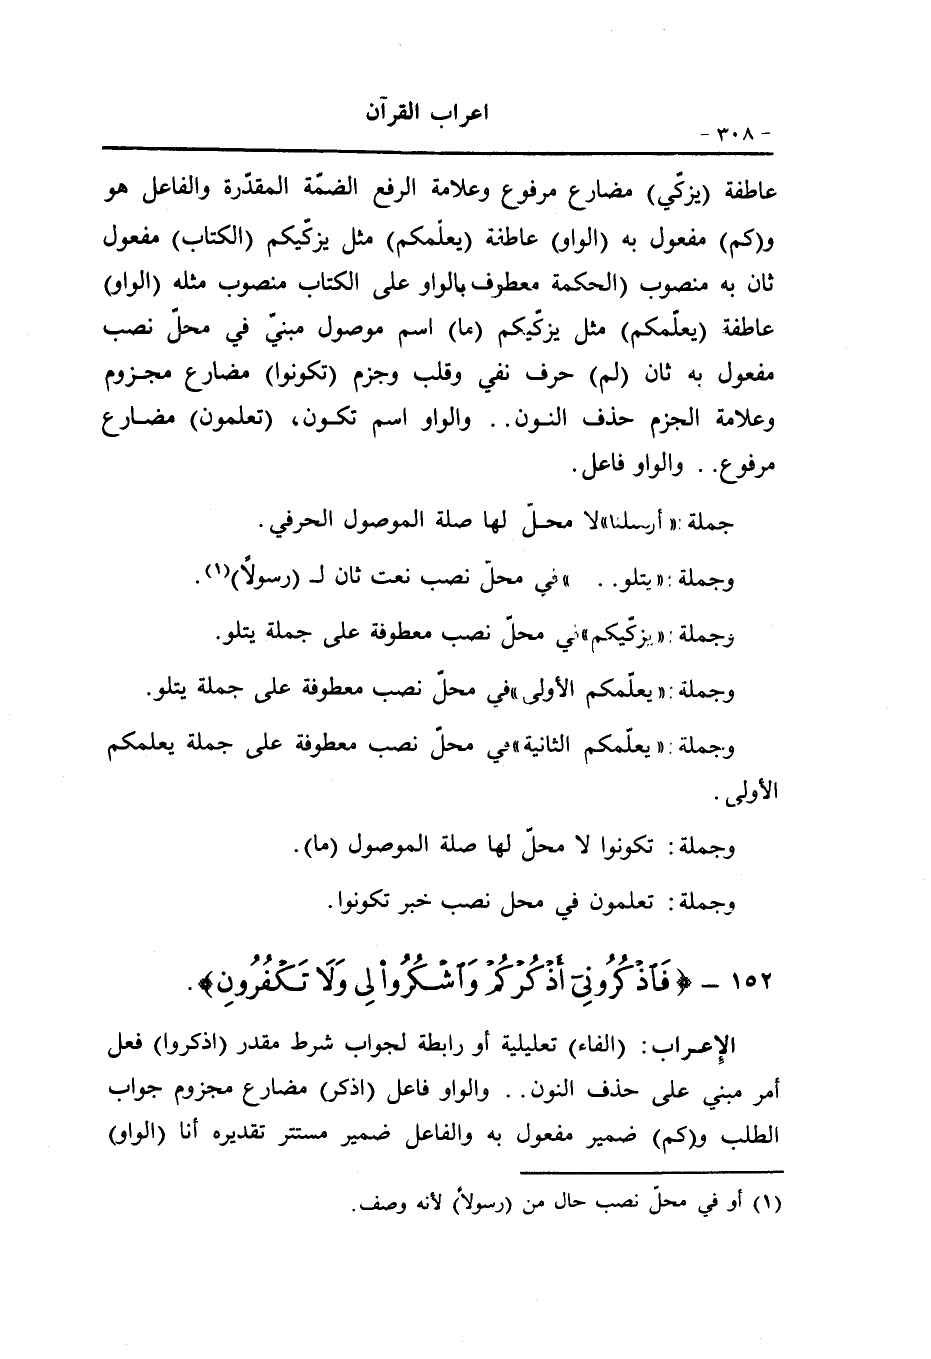 اعراب القرآن
- ٣٠٨ -
عاطفة (يزكّي) مضارع مرفوع وعلامة الرفع الضمّة المقدّرة والفاعل هو
و(كم) مفعول به (الواو) عاطفة (يعلّمكم) مثل يزكّيكم (الكتاب) مفعول
ثان به منصوب (الحكمة معطوف بالواو على الكتاب منصوب مثله (الواو)
عاطفة (يعلّمكم) مثل يزكّيكم (ما) اسم موصول مبنيّ في محلّ نصب
مفعول به ثان (لم) حرف نفي وقلب وجزم (تكونوا) مضارع مجزوم
وعلامة الجزم حذف النون.. والواو اسم تكون، (تعلمون) مضارع
مرفوع.. والواو فاعل.
جملة :«أرسلنا»لا محلّ لها صلة الموصول الحرفي.
وجملة :«يتلو.. »في محلّ نصب نعت ثان لـ (رسولاً)(١).
وجملة :«يزكّيكم»في محلّ نصب معطوفة على جملة يتلو.
وجملة :«يعلّمكم الأولى»في محلّ نصب معطوفة على جملة يتلو.
وجملة :«يعلّمكم الثانية»في محلّ نصب معطوفة على جملة يعلمكم
الأولى.
وجملة: تكونوا لا محلّ لها صلة الموصول (ما).
وجملة: تعلمون في محل نصب خبر تكونوا.
١٥٢ - ﴿فَٱذْكُرُونِيٓ أَذْكُرْكُمْ وَٱشْكُرُواْ لِي وَلَا تَكْفُرُونِ﴾.
الإعراب: (الفاء) تعليلية أو رابطة لجواب شرط مقدر (اذكروا) فعل
أمر مبني على حذف النون.. والواو فاعل (اذكر) مضارع مجزوم جواب
الطلب و(كم) ضمير مفعول به والفاعل ضمير مستتر تقديره أنا (الواو)
(١) أو في محلّ نصب حال من (رسولاً) لأنه وصف.